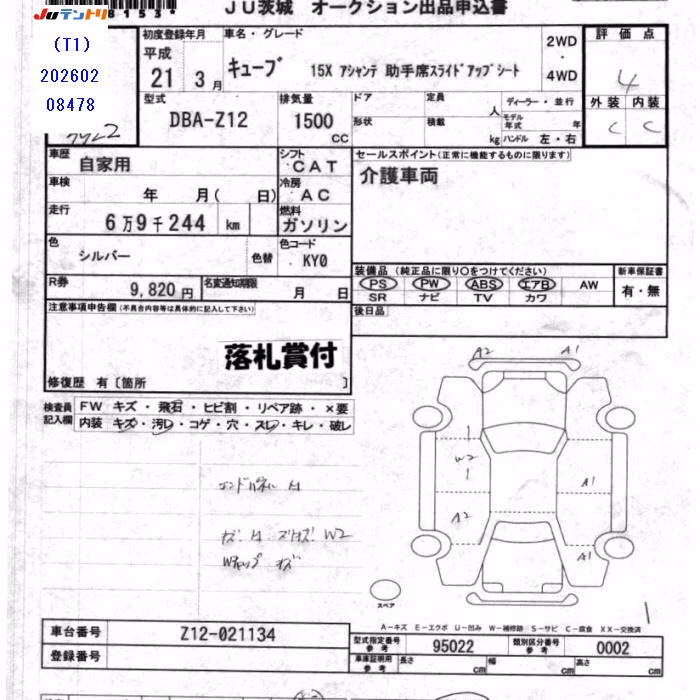 JUテントリ
8153*
JU茨城 オークション出品申込書
(T1)
202602
08478
初度登録年月
平成
21 3 月
車名・グレード
キューブ 15X アシャンテ 助手席スライドアップシート
2WD
・
4WD
評価点
4
外装 内装
C C
型式
DBA-Z12
排気量
1500
CC
ドア 定員 人
形状 積載 kg
ディーラー・並行
モデル年式 年
ハンドル 左・右
車歴
自家用
シフト
CAT
車検
年 月( 日)
冷房
AC
走行
6万9千244 km
燃料
ガソリン
色
シルバー
色替
色コード
KY0
R券
9,820 円
名変通知期限
月 日
セールスポイント(正常に機能するものに限ります)
介護車両
装備品 (純正品に限り○をつけてください)
PS PW ABS エアB AW
SR ナビ TV カワ
新車保証書
有・無
後日品
注意事項申告欄(不具合内容等は具体的に記入して下さい)
落札賞付
修復歴 有〔箇所 〕
検査員
記入欄
FW キズ・飛石・ヒビ割・リペア跡・×要
内装 キズ・汚レ・コゲ・穴・スレ・キレ・破レ
エンドパネル
W2
A2 A1
W2
A1
A2
A1
スペア
1
A-キズ E-エクボ U-凹み W-補修跡 S-サビ C-腐食 XX-交換済
車台番号
Z12-021134
登録番号
型式指定番号
参考
95022
類別区分番号
参考
0002
車庫証明用
参考
長さ cm 幅 cm 高さ cm